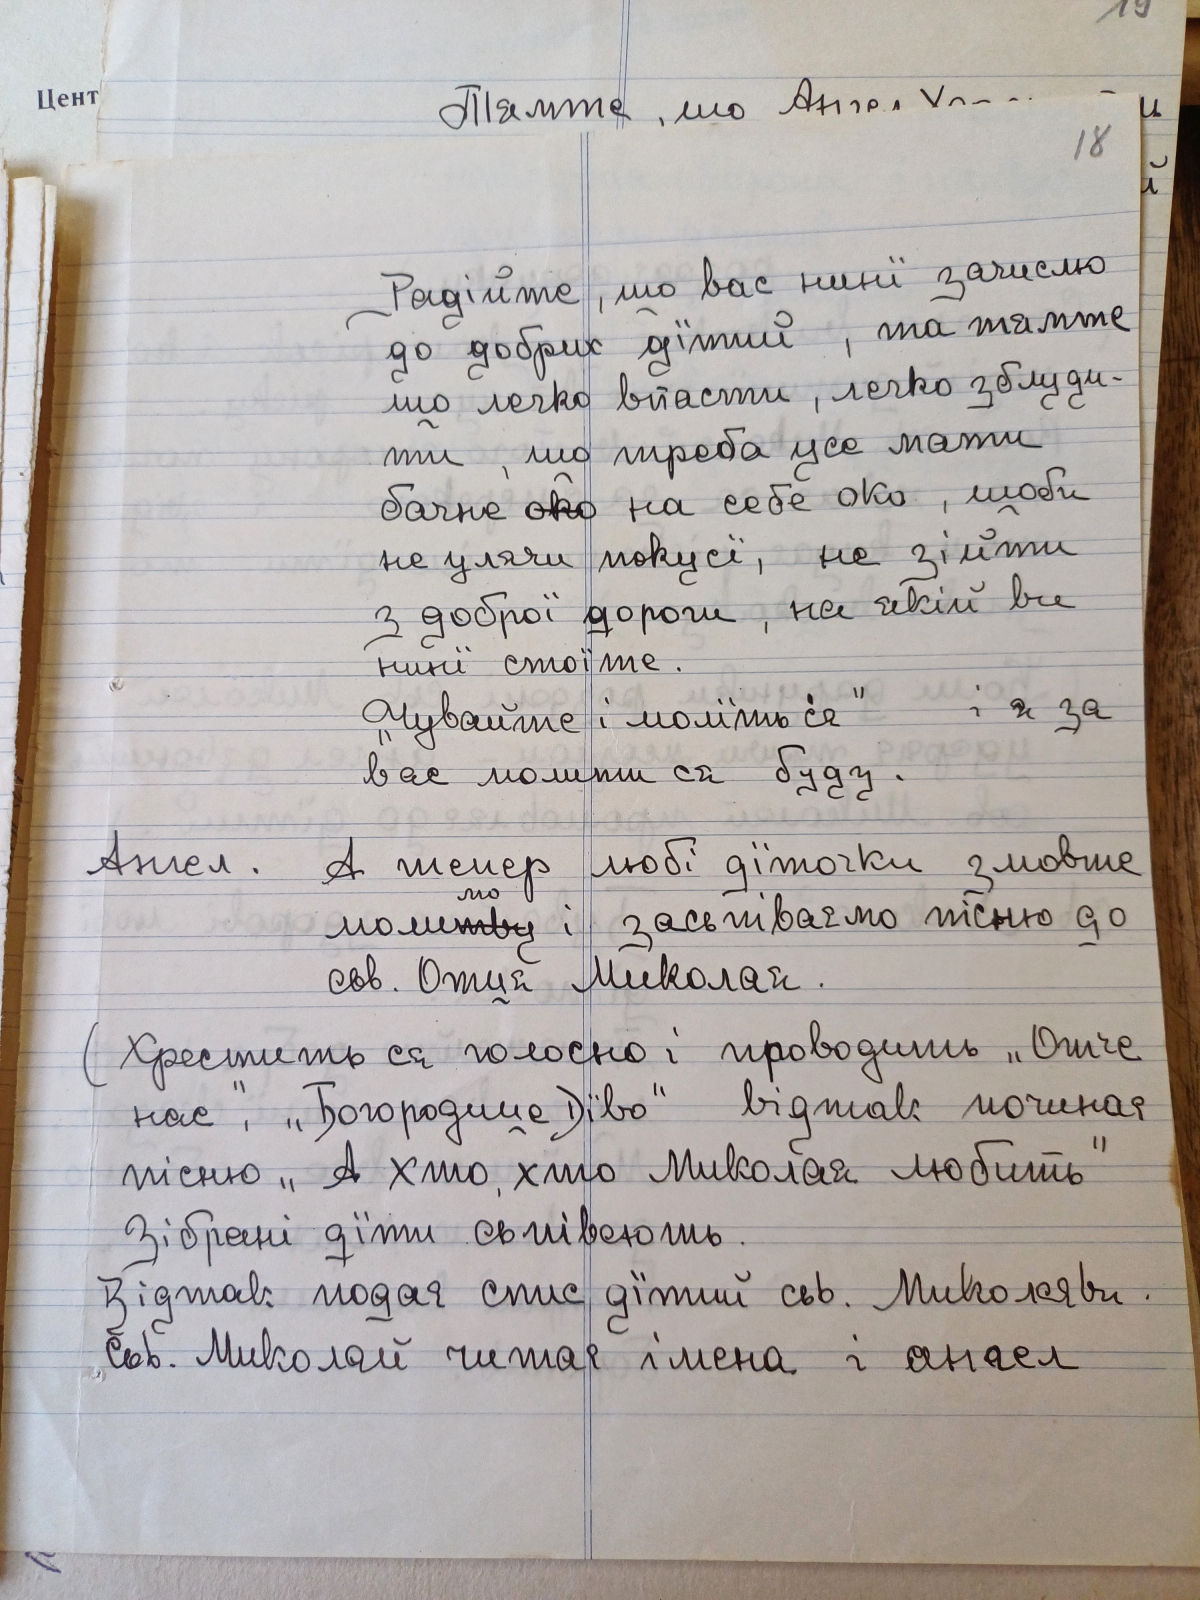 19
Цент
Тямте, що Ангел
18
Радійте, що вас нинї зачислю
до добрих дїтий, та тямте
що легко впасти, легко зблуди-
ти, що треба усе мати
бачне око на себе око, щоби
не улячи покусї, не зійти
з доброї дороги, на якій ви
нинї стоїте.
„Чувайте і молїть ся" і я за
вас молити ся буду.
Ангел. А тепер любі дїточки змовте
мо
молитву і засьпіваємо пісню до
сьв. Отця Миколая.
(Хрестить ся голосно і проводить „Отче
нас", „Богородице Дїво" відтак починає
пісню „А хто, хто Миколая любить"
Зібрані дїти сьпівають.
Відтак подає спис дїтий сьв. Миколяви.
Сьв. Миколай читає імена і ангел